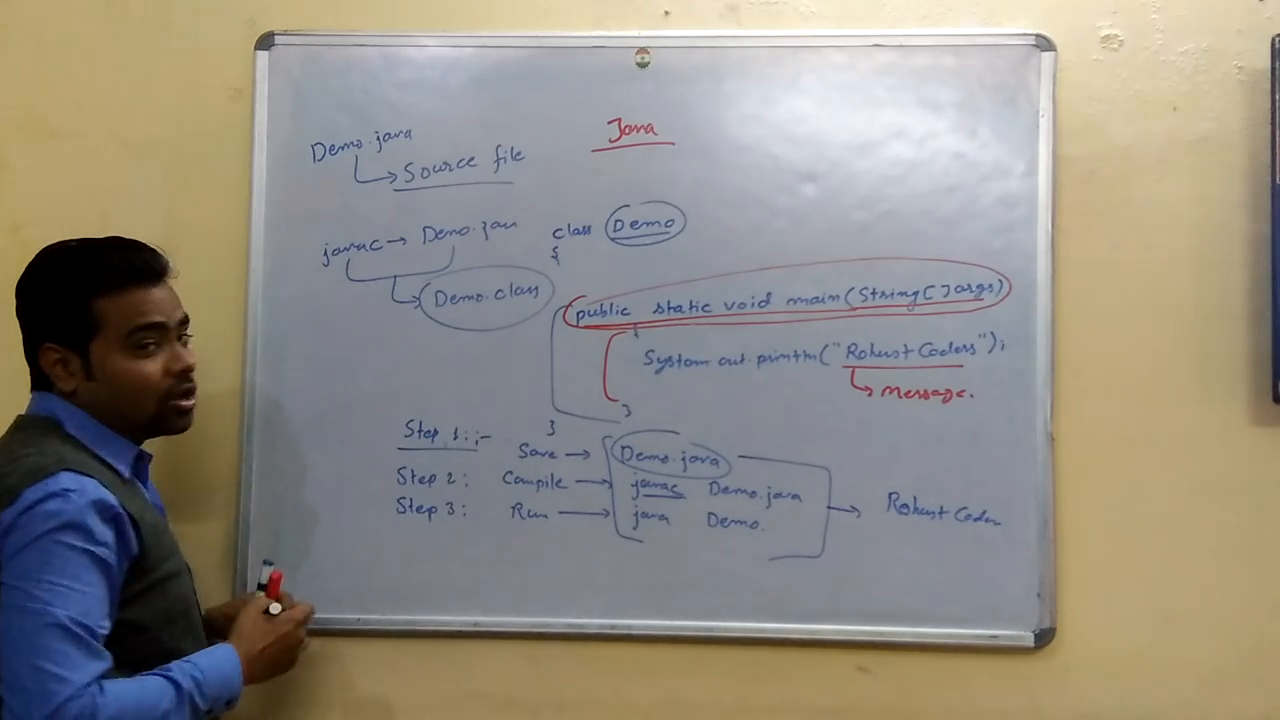 Java
Demo.java
Source file
javac → Demo.java
Demo.class
class Demo
{
public static void main(String[]args)
{
System.out.println("Robust Coders");
message.
}
}
Step 1:;-
Save → Demo.java
Step 2: Compile → javac Demo.java
Step 3: Run → java Demo.
→ Robust Coders